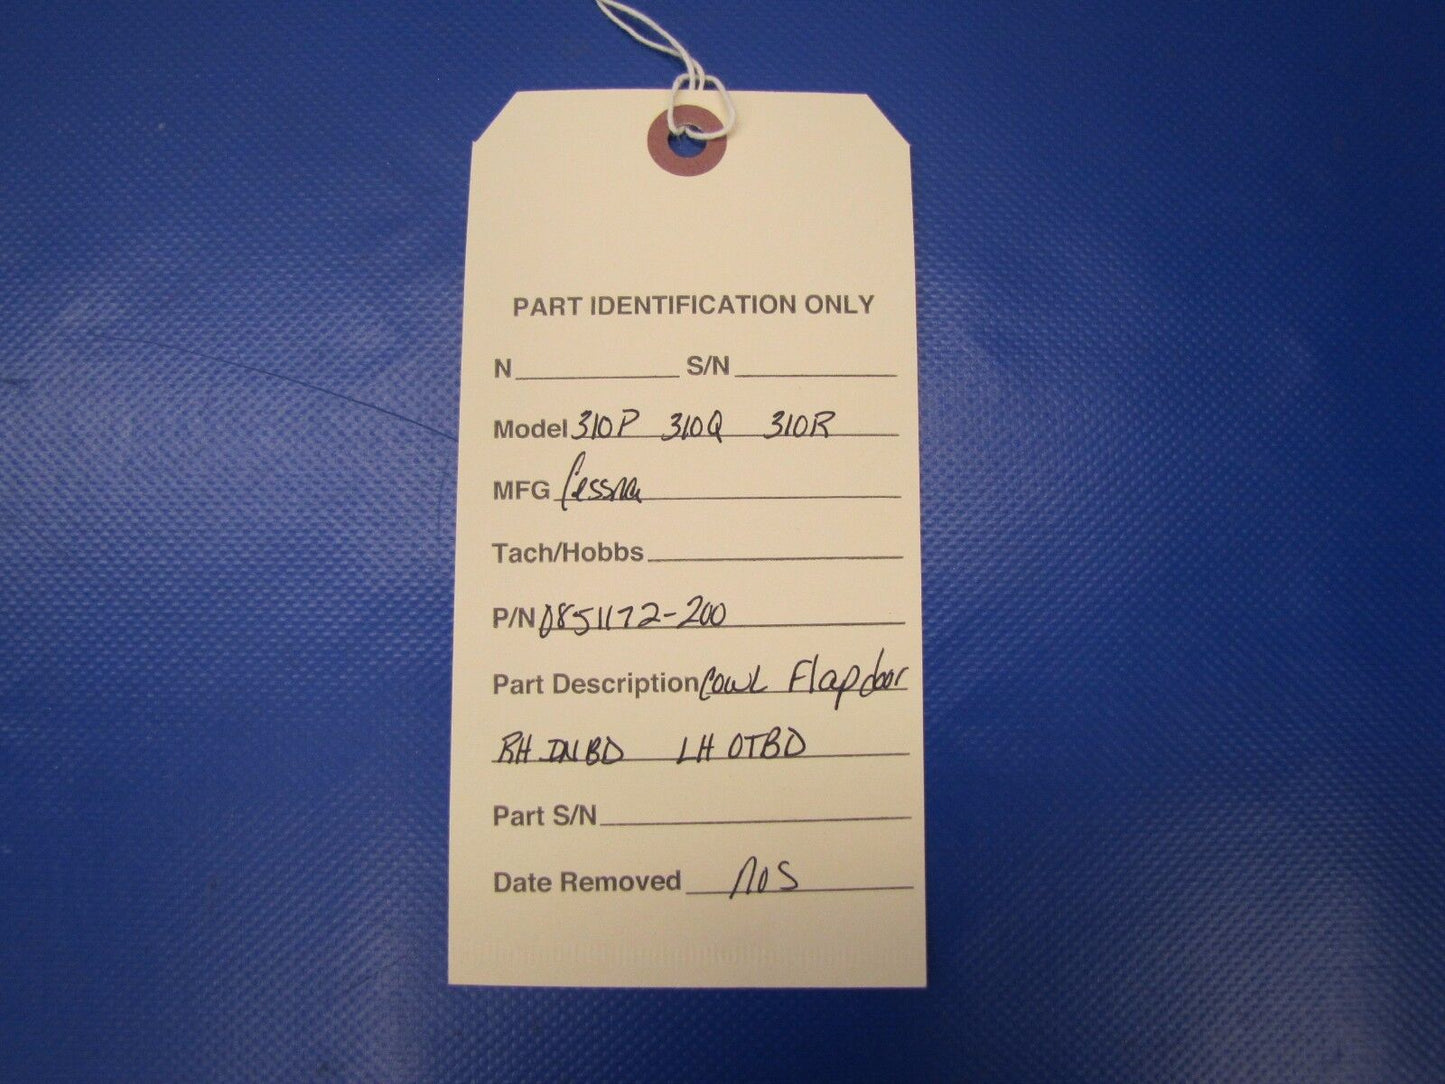 PART IDENTIFICATION ONLY
N S/N
Model 310P 310Q 310R
MFG Cessna
Tach/Hobbs
P/N 0851172-200
Part Description Cowl Flap door
RH INBD LH OTBD
Part S/N
Date Removed NOS